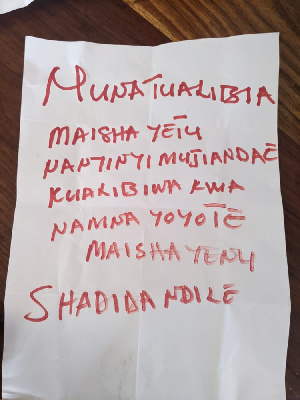 MUNATUALIBIA
MAISHA YETU
NANYINYI MUJIANDAE
KUALIBIWA KWA
NAMNA YOYOTE
MAISHA YENU
SHADIDA NDILE